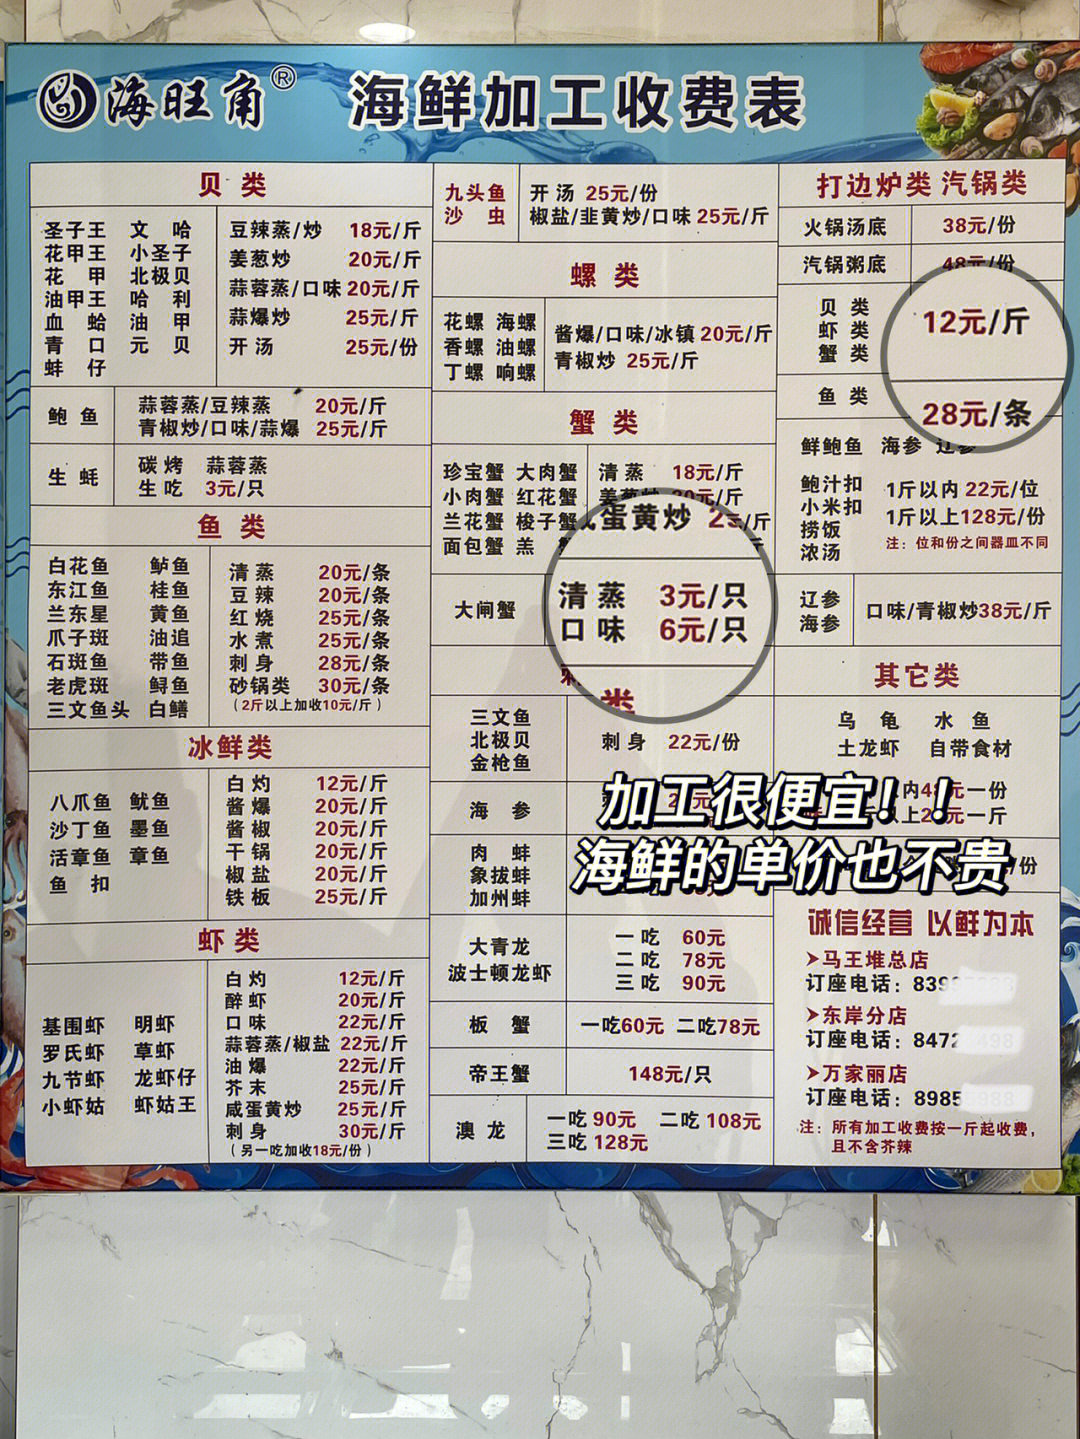 海旺角®
海鲜加工收费表
贝 类
圣子王 文 哈
花甲王 小圣子
花 甲 北极贝
油甲王 哈 利
血 蛤 油 甲
青 口 元 贝
蚌 仔
豆辣蒸/炒 18元/斤
姜葱炒 20元/斤
蒜蓉蒸/口味 20元/斤
蒜爆炒 25元/斤
开 汤 25元/份
鲍 鱼
蒜蓉蒸/豆辣蒸 20元/斤
青椒炒/口味/蒜爆 25元/斤
生 蚝
碳 烤 蒜蓉蒸
生 吃 3元/只
鱼 类
白花鱼 鲈鱼
东江鱼 桂鱼
兰东星 黄鱼
爪子斑 油追
石斑鱼 带鱼
老虎斑 鲟鱼
三文鱼头 白鳝
清 蒸 20元/条
豆 辣 20元/条
红 烧 25元/条
水 煮 25元/条
刺 身 28元/条
砂锅类 30元/条
(2斤以上加收10元/斤)
冰鲜类
八爪鱼 鱿鱼
沙丁鱼 墨鱼
活章鱼 章鱼
鱼 扣
白 灼 12元/斤
酱 爆 20元/斤
酱 椒 20元/斤
干 锅 20元/斤
椒 盐 20元/斤
铁 板 25元/斤
虾 类
基围虾 明虾
罗氏虾 草虾
九节虾 龙虾仔
小虾姑 虾姑王
白 灼 12元/斤
醉 虾 20元/斤
口 味 22元/斤
蒜蓉蒸/椒盐 22元/斤
油 爆 22元/斤
芥 末 25元/斤
咸蛋黄炒 25元/斤
刺 身 30元/斤
(另一吃加收18元/份)
九头鱼
沙 虫
开 汤 25元/份
椒盐/韭黄炒/口味 25元/斤
螺 类
花螺 海螺
香螺 油螺
丁螺 响螺
酱爆/口味/冰镇 20元/斤
青椒炒 25元/斤
蟹 类
珍宝蟹 大肉蟹
小肉蟹 红花蟹
兰花蟹 梭子蟹
面包蟹 羔
清 蒸 18元/斤
姜葱炒 20元/斤
蛋黄炒 25元/斤
大闸蟹
清 蒸 3元/只
口 味 6元/只
类
三文鱼
北极贝
金枪鱼
刺 身 22元/份
海 参
肉 蚌
象拔蚌
加州蚌
大青龙
波士顿龙虾
一 吃 60元
二 吃 78元
三 吃 90元
板 蟹
一吃60元 二吃78元
帝王蟹
148元/只
澳 龙
一吃 90元 二吃 108元
三吃 128元
打边炉类 汽锅类
火锅汤底 38元/份
汽锅粥底 48元/份
贝 类
虾 类
蟹 类
12元/斤
鱼 类
28元/条
鲜鲍鱼 海参 辽参
鲍汁扣
小米扣
捞饭
浓汤
1斤以内 22元/位
1斤以上128元/份
注：位和份之间器皿不同
辽参
海参
口味/青椒炒38元/斤
其它类
乌 龟 水 鱼
土龙虾 自带食材
内48元一份
上2元一斤
/份
加工很便宜！！
海鲜的单价也不贵
诚信经营 以鲜为本
➤马王堆总店
订座电话：839
➤东岸分店
订座电话：8472
➤万家丽店
订座电话：8985
注：所有加工收费按一斤起收费，
且不含芥辣